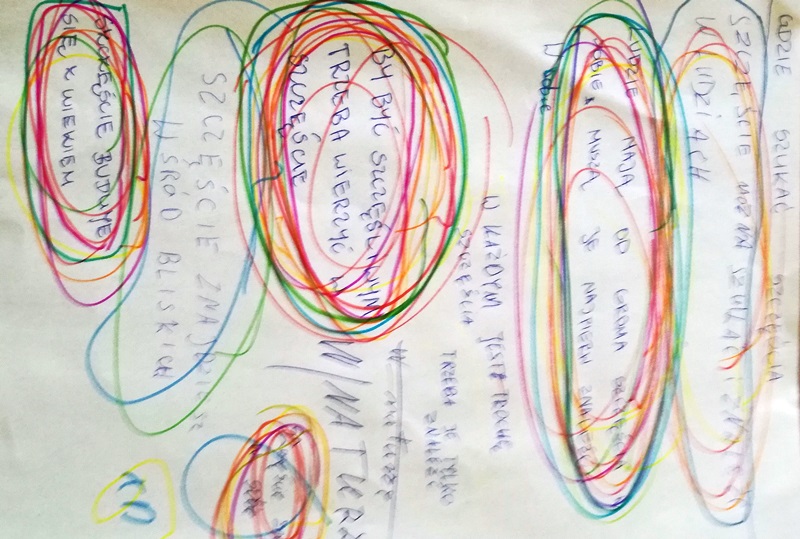 GDZIE SZUKAĆ SZCZĘŚCIA
SZCZĘŚCIE MOŻNA SZUKAĆ I ZNALEŹĆ
W LUDZIACH
LUDZIE MAJĄ OD GROMA SZCZĘŚCIA
W sobie i MUSZĄ JE NAJPIERW ZNALEŹĆ
W KAŻDYM JEST TROCHĘ
SZCZĘŚCIA
TRZEBA JE TYLKO
ZNALEŹĆ
BY BYĆ SZCZĘŚLIWYM
TRZEBA WIERZYĆ W
SZCZĘŚCIE
W NATURZE
SZCZĘŚCIE ZNAJDZIE SIĘ
WŚRÓD BLISKICH
SZCZĘŚCIE BUDUJE
SIĘ Z WIEKIEM